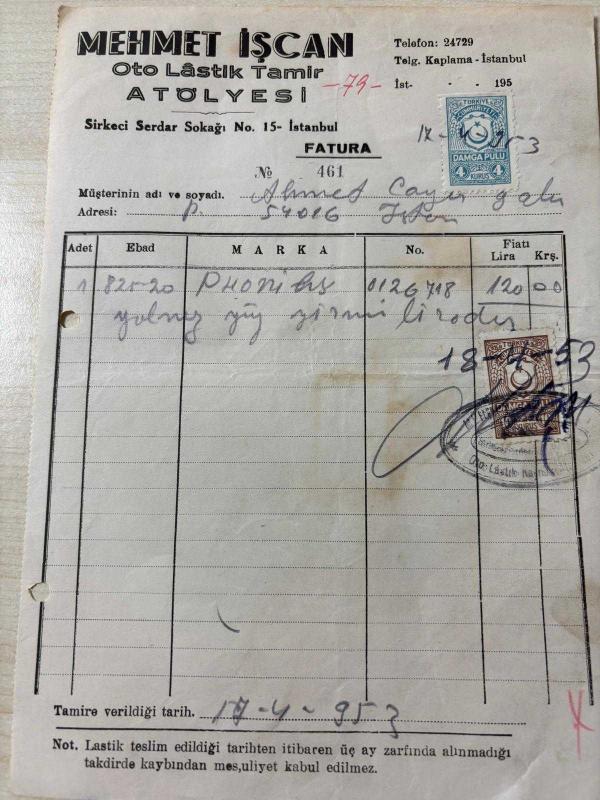 MEHMET İŞCAN
Oto Lâstik Tamir
ATÖLYESİ
Sirkeci Serdar Sokağı No. 15- İstanbul
Telefon: 24729
Telg. Kaplama - İstanbul
İst- - - 195
-79-
17-4-953
TÜRKİYE
CUMHURİYETİ
DAMGA PULU
4 KURUŞ 4
FATURA
№ 461
Müşterinin adı ve soyadı. Ahmet
Adresi: P. 54016
Adet Ebad MARKA No. Fiatı
Lira Krş.
1 825-20 0126718 120 00
yalnız yüz yirmi liradır
18-4-53
TÜRKİYE
Oto Lâstik
Tamire verildiği tarih. 17-4-953
Not. Lastik teslim edildiği tarihten itibaren üç ay zarfında alınmadığı
takdirde kaybından mes,uliyet kabul edilmez.